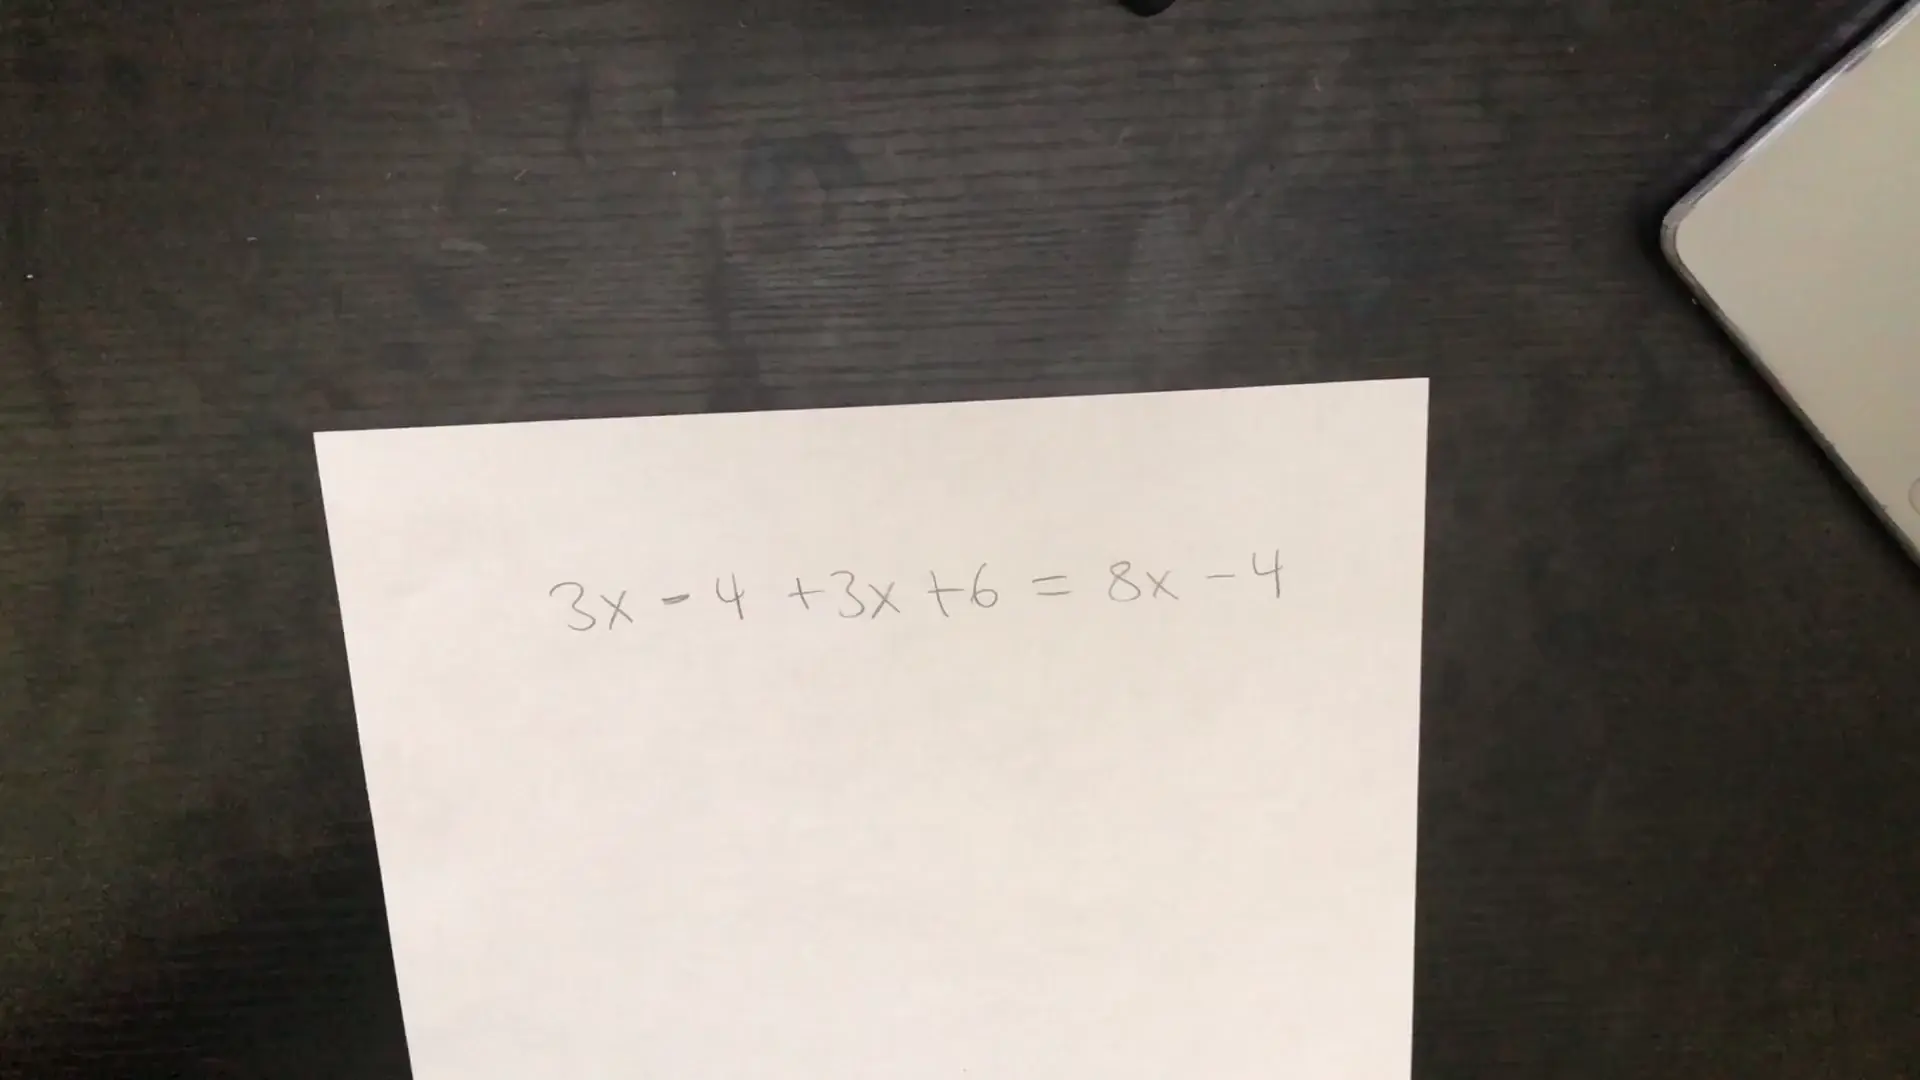 3x - 4 + 3x + 6 = 8x - 4